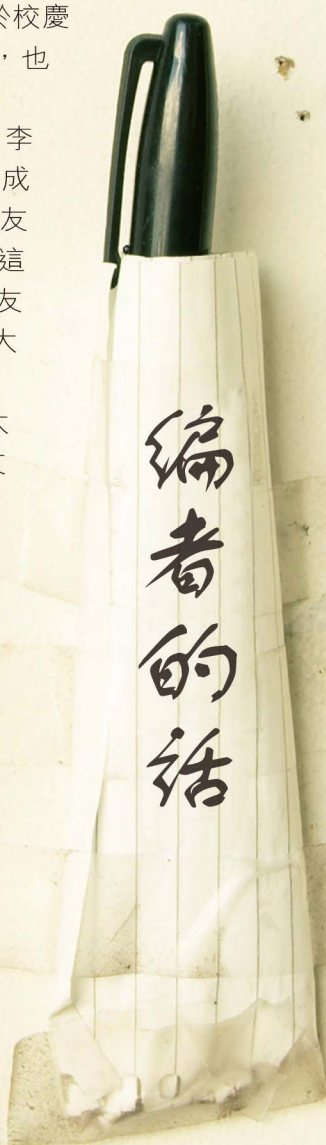 於校慶
，也
李
成
友
這
友
大
編者的話